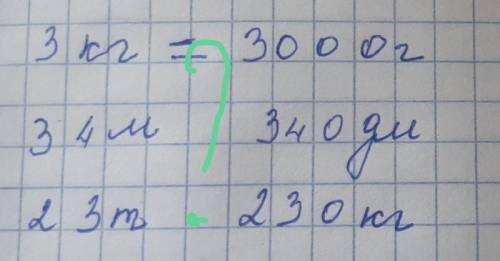 3 кг = 3000г
34м 340дм
23т 230кг